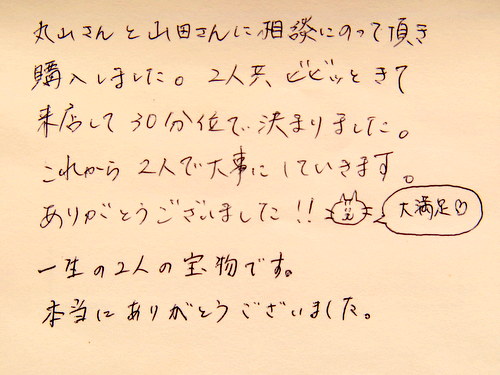 丸山さんと山田さんに相談にのって頂き
購入しました。2人共、ビビッときて
来店して30分位で決まりました。
これから2人で大事にしていきます。
ありがとうございました!!
大満足♡
一生の2人の宝物です。
本当にありがとうございました。